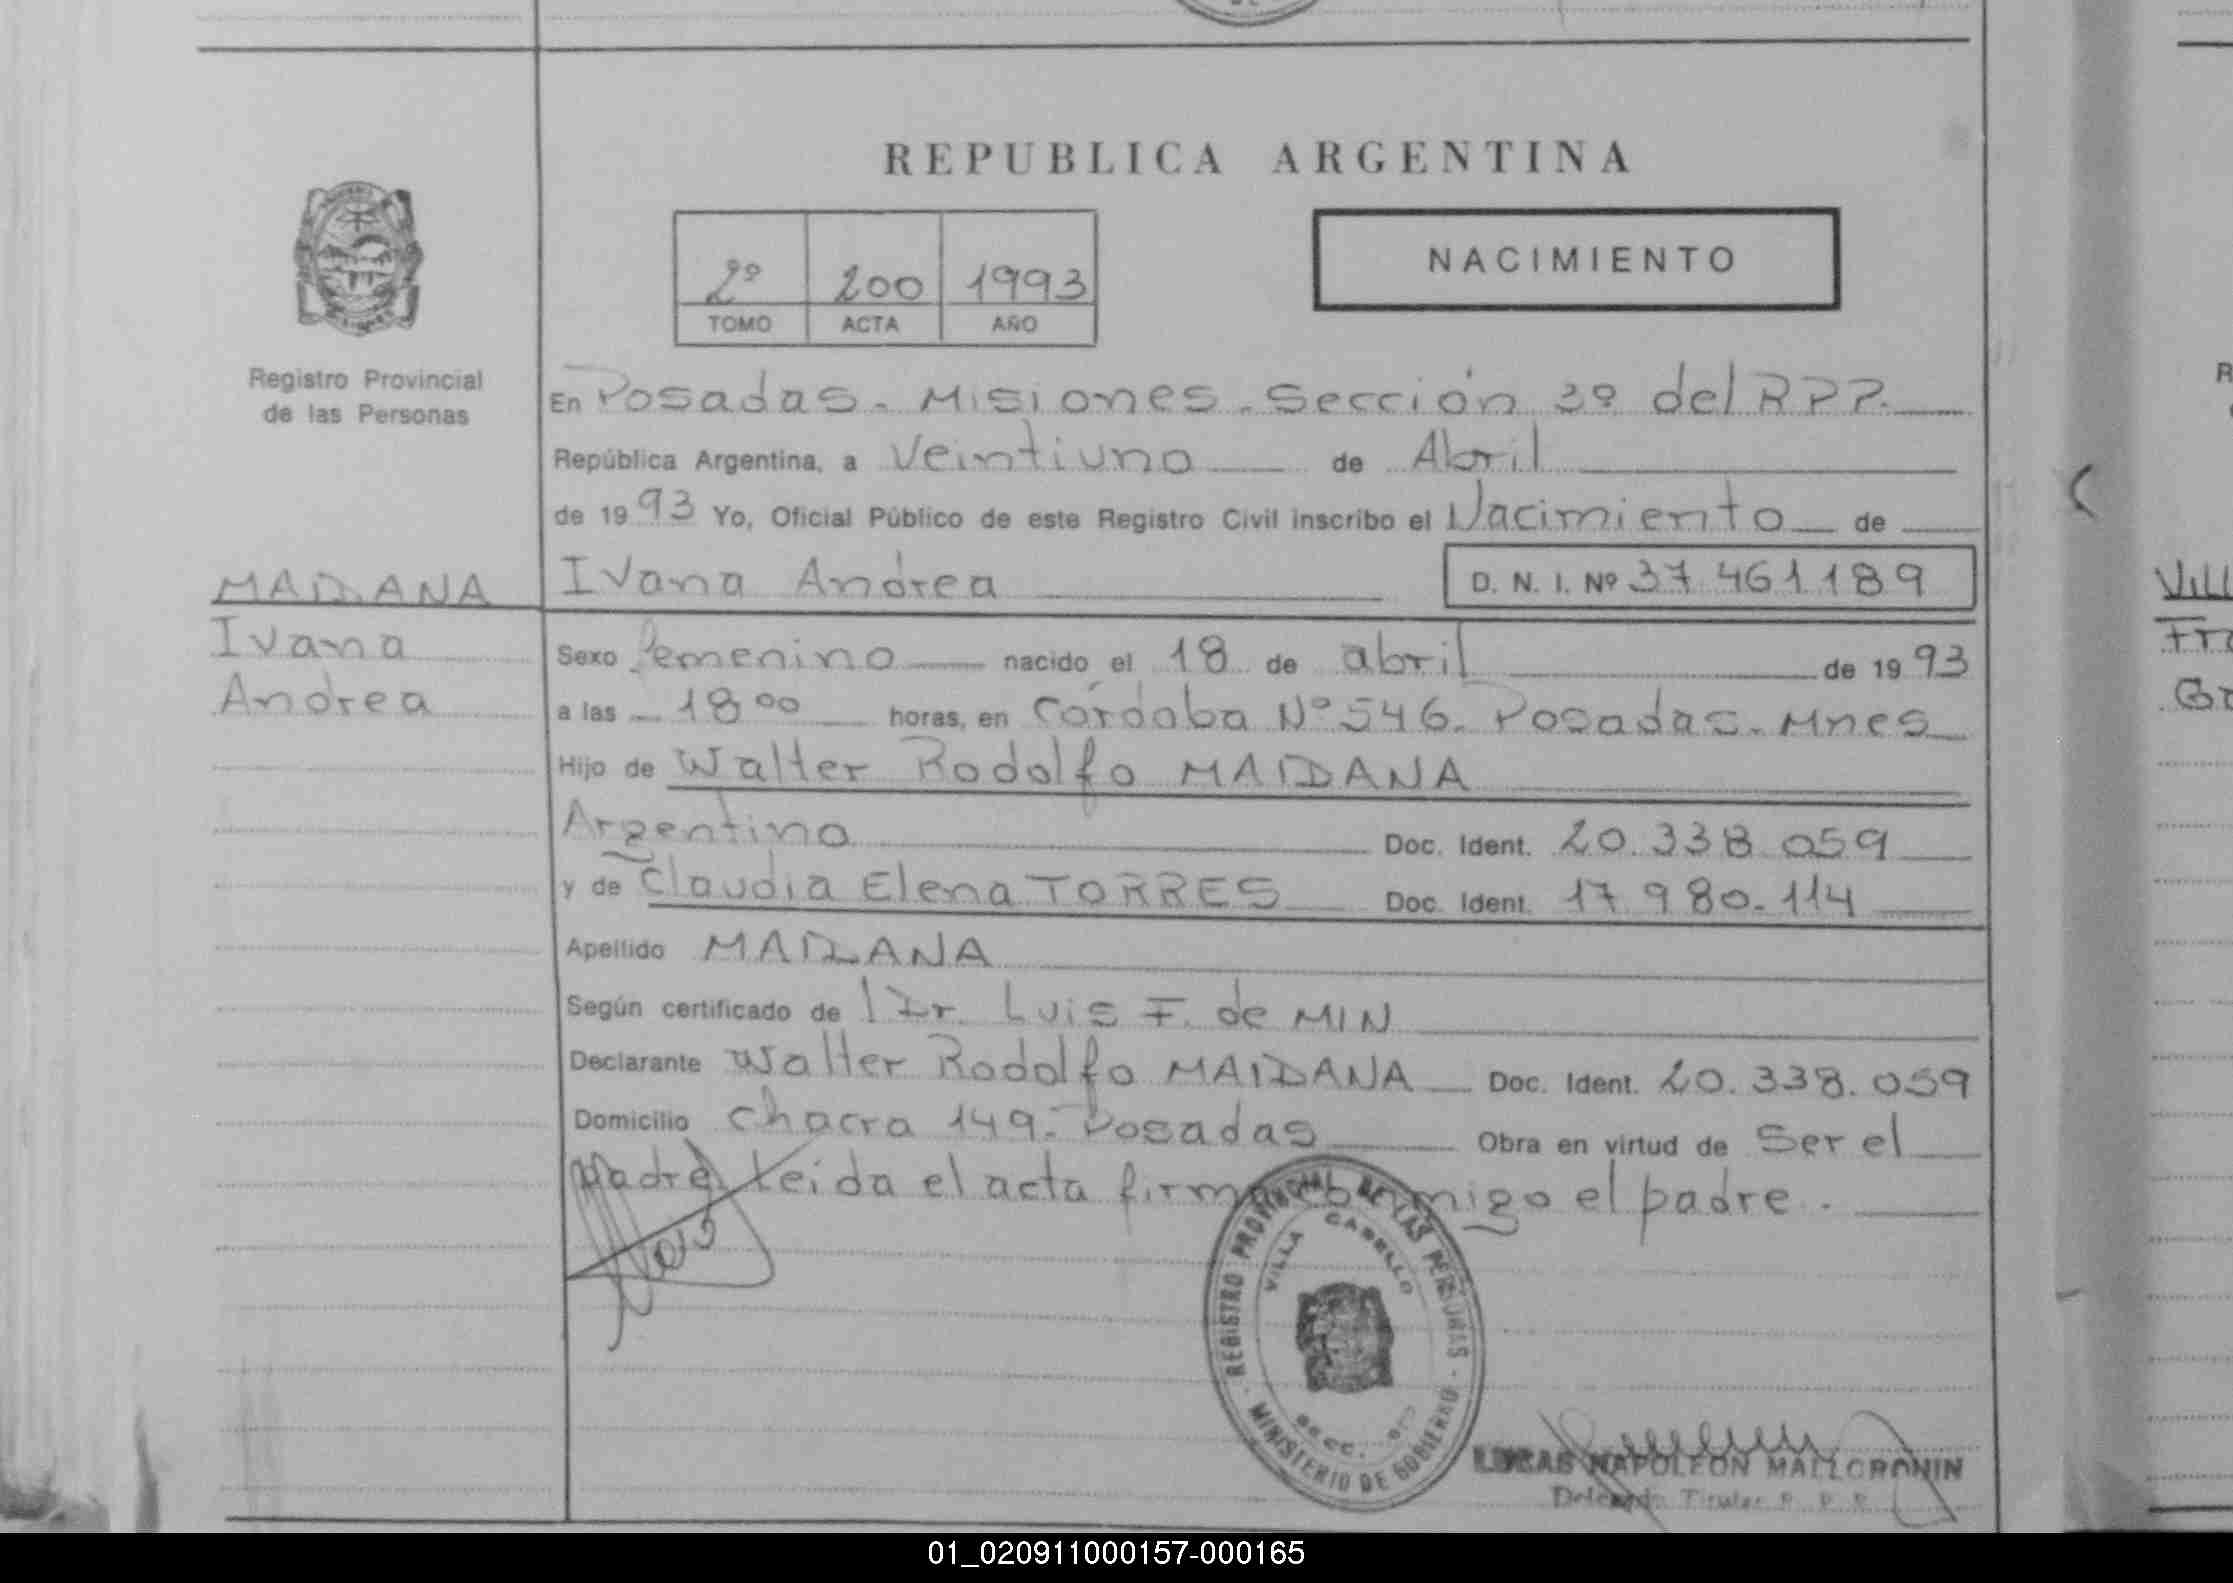 REPUBLICA ARGENTINA
NACIMIENTO
2º 200 1993
TOMO ACTA AÑO
Registro Provincial
de las Personas
En Posadas - Misiones - Sección 3º del R P P.
República Argentina, a Veintiuno de Abril
de 19 93 Yo, Oficial Público de este Registro Civil inscribo el Nacimiento de
MAIDANA
Ivana
Andrea
Ivana Andrea D. N. I. Nº 37.461.189
Sexo Femenino nacido el 18 de abril de 19 93
a las 18ºº horas, en Córdoba Nº 546. Posadas. Mnes
Hijo de Walter Rodolfo MAIDANA
Argentino Doc. Ident. 20.338.059
y de Claudia Elena TORRES Doc. Ident. 17.980.114
Apellido MAIDANA
Según certificado de l Dr. Luis F. de MIN
Declarante Walter Rodolfo MAIDANA Doc. Ident. 20.338.059
Domicilio Chacra 149. Posadas Obra en virtud de Ser el
Padre Leida el acta firma conmigo el padre.
REGISTRO PROVINCIAL DE LAS PERSONAS
VILLA CABELLO
SECC.
MINISTERIO DE GOBIERNO
LUCAS NAPOLEON MALLORQUIN
Delegado Titular R. P. P.
VILL
Fra
01_020911000157-000165